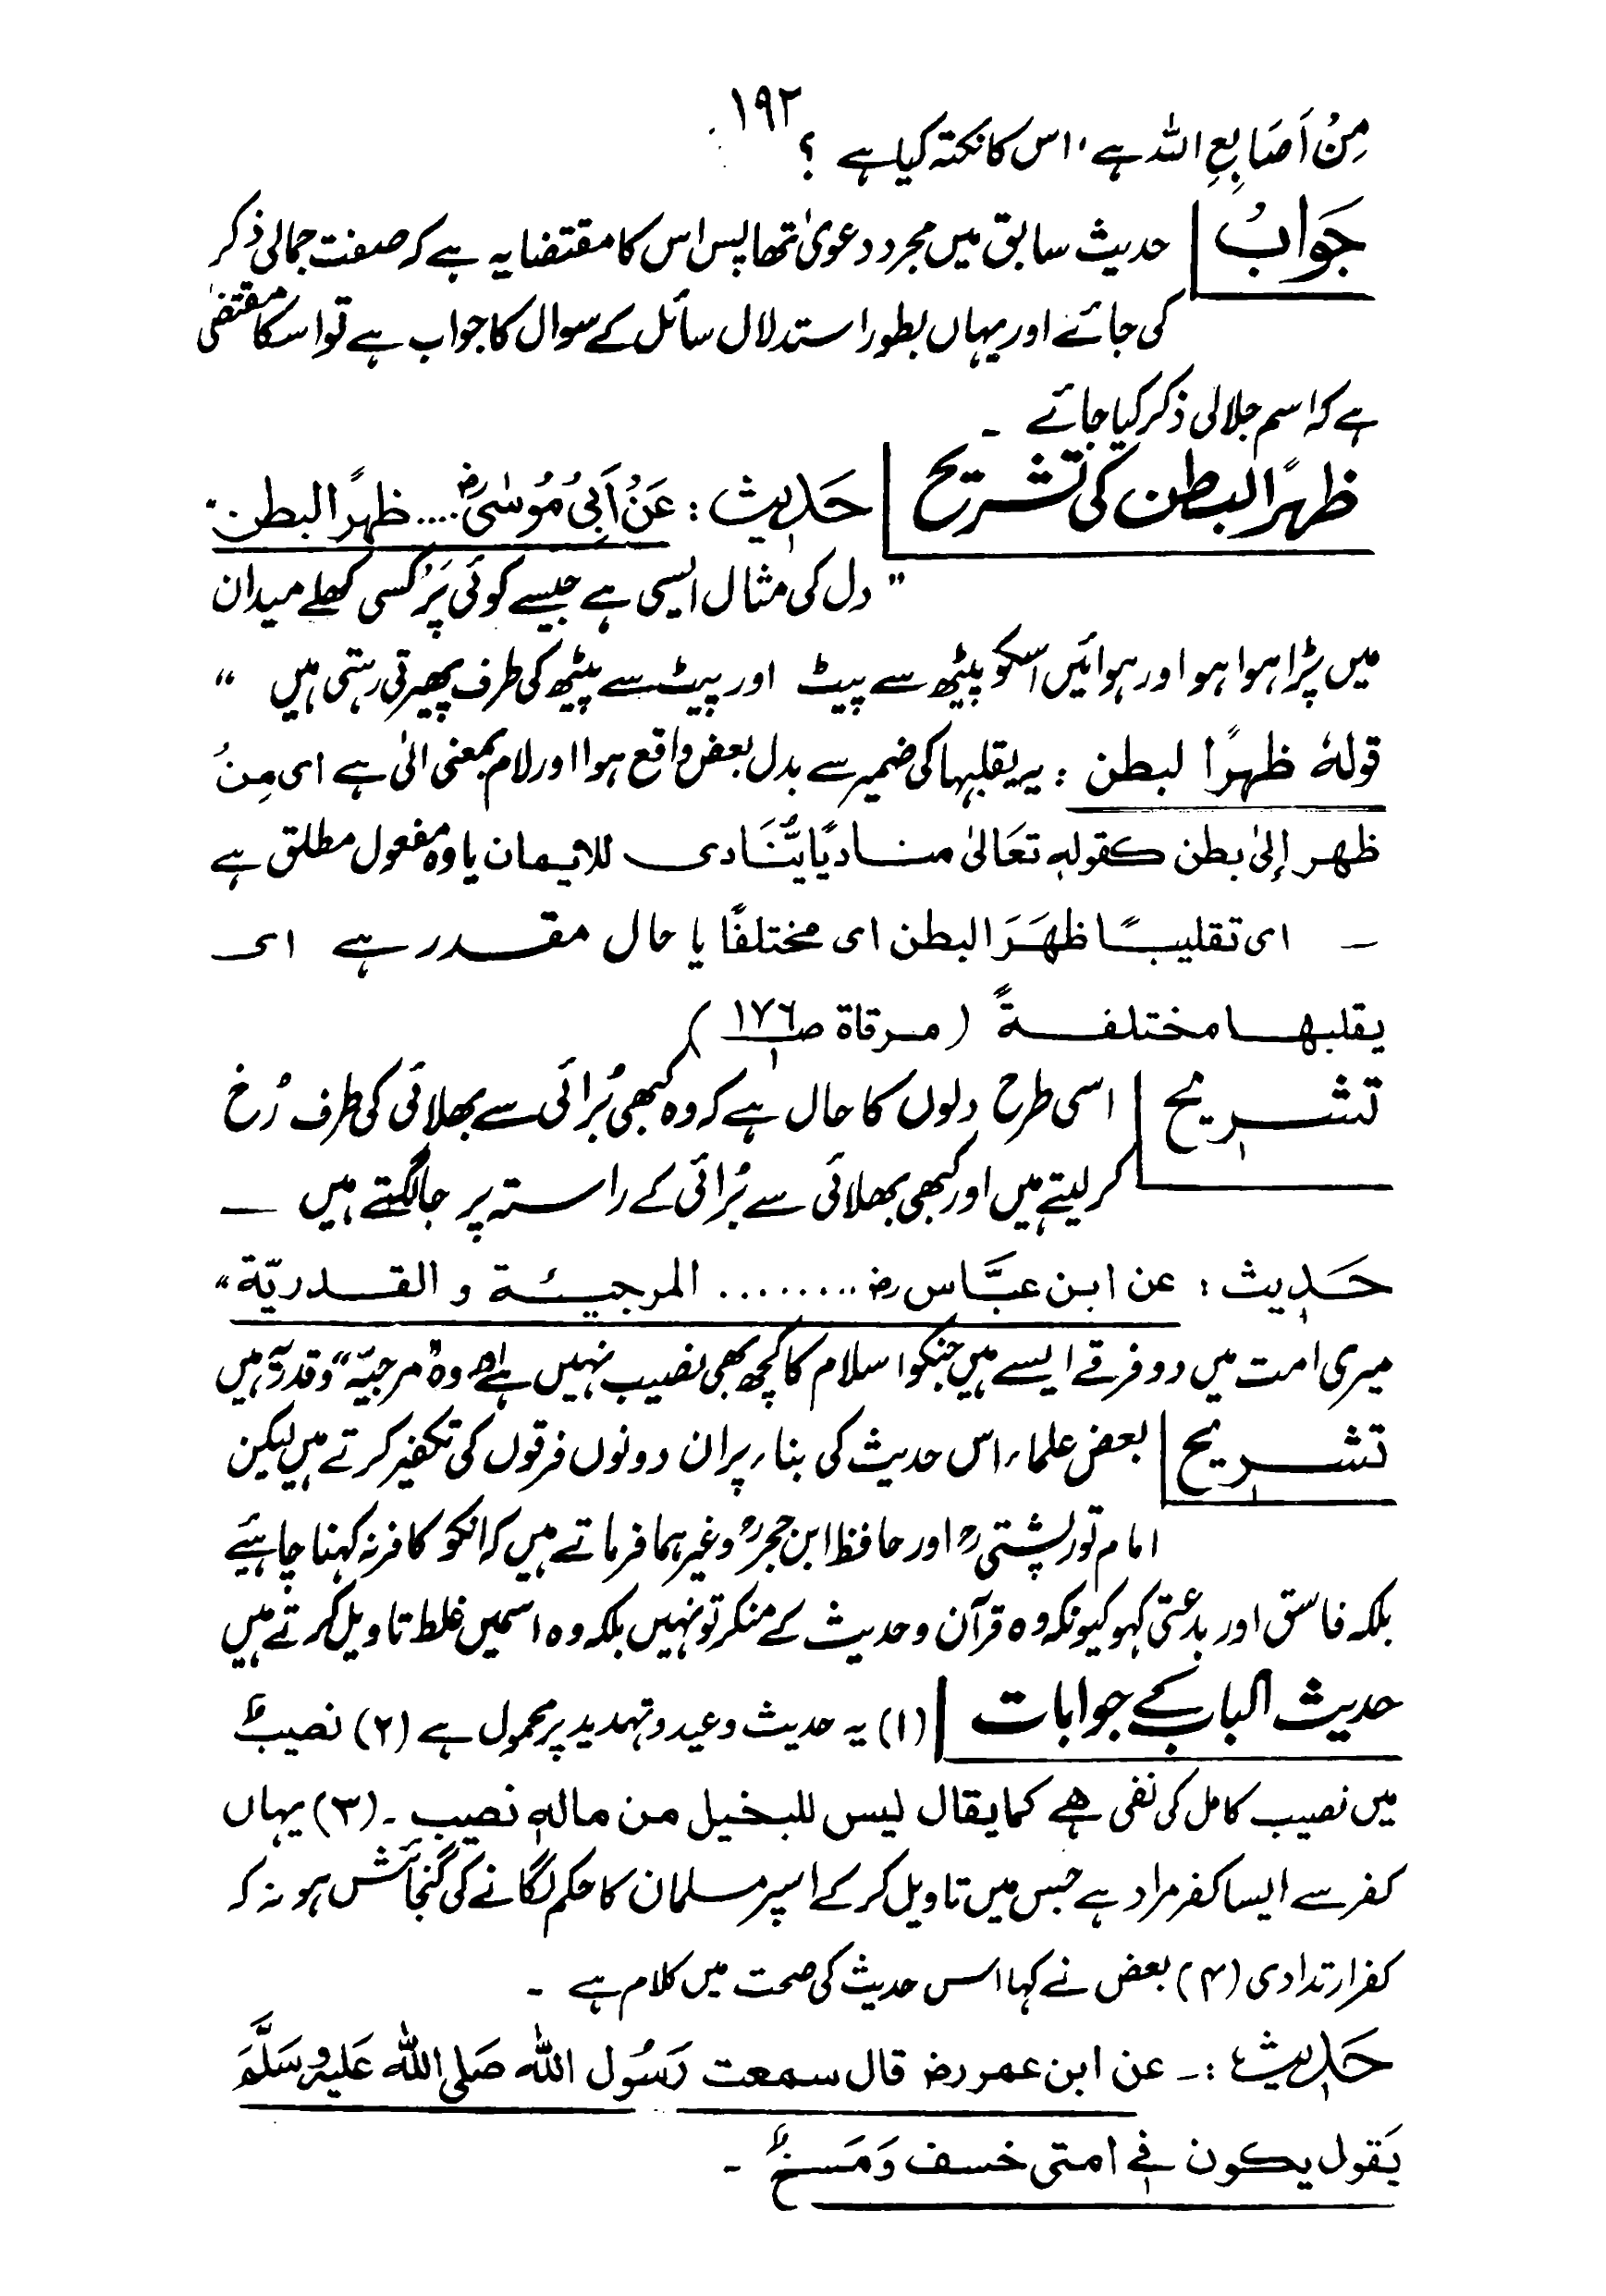 ۱۹۲
مِنْ اَصَابِعِ اللہ ہے، اس کا نکتہ کیا ہے ؟
جَوابُ حدیث سابق میں مجرد دعویٰ تھا پس اس کا مقتضا یہ ہے کہ صفت جمالی ذکر
کی جائے اور یہاں بطور استدلال سائل کے سوال کا جواب ہے تو اسکا مقتضیٰ
ہے کہ اسم جلالی ذکر کیا جائے ۔
ظہرًا لبطن کی تشریح حَدیث : عَنْ اَبِیْ مُوْسٰی رض .... ظہرًا لبطن .
" دل کی مثال ایسی ہے جیسے کوئی پَرْ کسی کھلے میدان
میں پڑا ہوا ہو اور ہوائیں اسکو پیٹھ سے پیٹ اور پیٹ سے پیٹھ کی طرف پھیرتی رہتی ہیں "
قولہٗ ظہرًا لبطن : یہ یقلبہا کی ضمیر سے بدل بعض واقع ہوا اور لام بمعنی الیٰ ہے ای مِنْ
ظھر إلیٰ بطن کقولہٖ تعَالیٰ منادیًا یُّنَادی للایمان یا وہ مفعول مطلق ہے
۔ ای تقلیبًا ظھَرَ البطن ای مختلفًا یا حال مقدر ہے ای
یقلبھا مختلفۃً (مرقاۃ ص۱۷۶/۱)
تشریح اسی طرح دلوں کا حال ہے کہ وہ کبھی بُرائی سے بھلائی کی طرف رُخ
کر لیتے ہیں اور کبھی بھلائی سے بُرائی کے راستہ پر جا لگتے ہیں ۔
حَدیث : عن ابن عبَّاس رض ........ المرجیئۃ و القدریّۃ "
میری امت میں دو فرقے ایسے ہیں جنکو اسلام کا کچھ بھی نصیب نہیں ہے اور وہ "مرجیّہ" و قدریّہ ہیں
تشریح بعض علماء اس حدیث کی بناء پر ان دونوں فرقوں کی تکفیر کرتے ہیں لیکن
امام تورپشتیؒ اور حافظ ابن حجرؒ وغیرہما فرماتے ہیں کہ انکو کافر نہ کہنا چاہیئے
بلکہ فاسق اور بدعتی کہو کیونکہ وہ قرآن و حدیث کے منکر تو نہیں بلکہ وہ اسمیں غلط تاویل کرتے ہیں
حدیث الباب کے جوابات (۱) یہ حدیث وعید و تہدید پر محمول ہے (۲) نصیبٌ
میں نصیب کامل کی نفی ہے کما یقال لیس للبخیل من مالہٖ نصیب ۔ (۳) یہاں
کفر سے ایسا کفر مراد ہے جس میں تاویل کر کے اسپر مسلمان کا حکم لگانے کی گنجائش ہو نہ کہ
کفر ارتدادی (۴) بعض نے کہا اس حدیث کی صحت میں کلام ہے ۔
حَدیث :۔ عن ابن عمر رض قال سمعت رَسُول اللّٰہ صَلی اللّٰہ عَلیہِ وسَلَّمَ
یَقول یکون فے امتی خسف وَمَسخٌ ۔